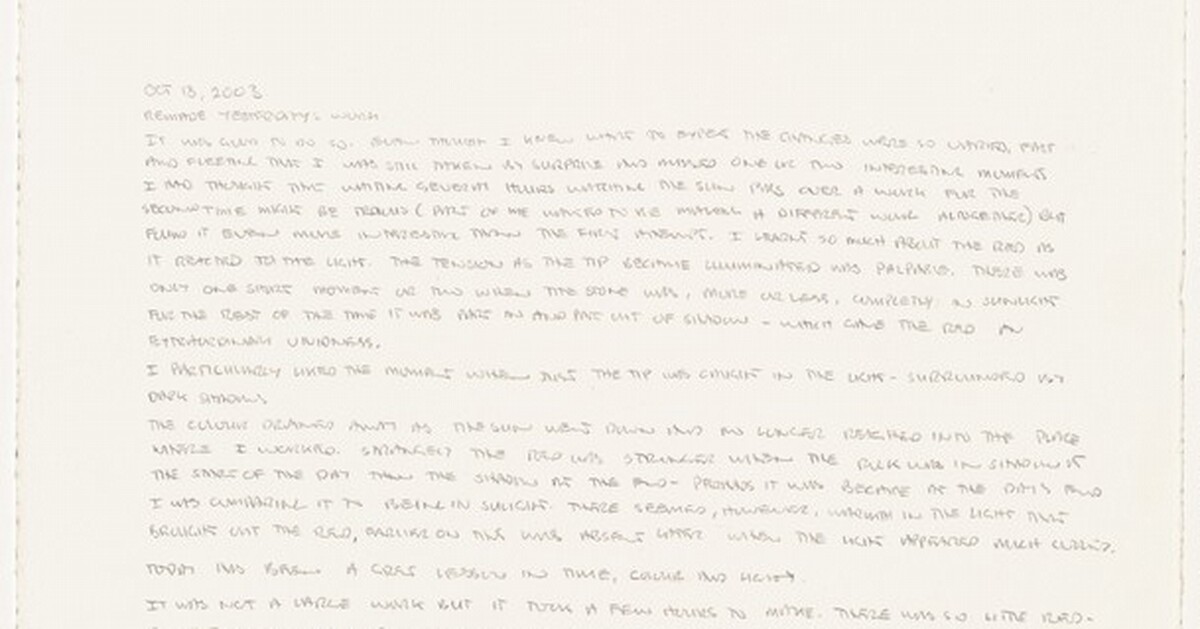 OCT 13, 2003
REMADE YESTERDAY'S WORK
IT WAS GOOD TO DO SO. EVEN THOUGH I KNEW WHAT TO EXPECT THE CHANGES WERE SO VARIED, FAST
AND FLEETING THAT I WAS STILL TAKEN BY SURPRISE AND MISSED ONE OR TWO INTERESTING MOMENTS
I HAD THOUGHT THAT WAITING SEVERAL HOURS WATCHING THE SUN PASS OVER A WORK FOR THE
SECOND TIME MIGHT BE TEDIOUS (PART OF ME WANTED TO BE MAKING A DIFFERENT WORK ALTOGETHER) BUT
FOUND IT EVEN MORE INTERESTING THAN THE FIRST ATTEMPT. I LEARNT SO MUCH ABOUT THE RED AS
IT REACTED TO THE LIGHT. THE TENSION AS THE TIP BECAME ILLUMINATED WAS PALPABLE. THERE WAS
ONLY ONE SHORT MOMENT OR TWO WHEN THE STONE WAS, MORE OR LESS, COMPLETELY IN SUNLIGHT
FOR THE REST OF THE TIME IT WAS PART IN AND PART OUT OF SHADOW - WHICH GAVE THE RED AN
EXTRAORDINARY
I PARTICULARLY LIKED THE MOMENT WHEN JUST THE TIP WAS CAUGHT IN THE LIGHT - SURROUNDED BY
DARK SHADOWS
THE COLOUR DRAINED AWAY AS THE SUN WENT DOWN AND NO LONGER REACHED INTO THE PLACE
WHERE I WORKED. STRANGELY THE RED WAS STRONGER WHEN THE ROCK WAS IN SHADOW AT
THE START OF THE DAY THAN THE SHADOW AT THE END - PERHAPS IT WAS BECAUSE AT THE DAY'S END
I WAS COMPARING IT TO BEING IN SUNLIGHT. THERE SEEMED, HOWEVER, WARMTH IN THE LIGHT THAT
BROUGHT OUT THE RED, EARLIER ON THAT WAS ABSENT LATER WHEN THE LIGHT APPEARED MUCH COLDER.
TODAY HAS BEEN A GREAT LESSON IN TIME, COLOUR AND LIGHT.
IT WAS NOT A LARGE WORK BUT IT TOOK A FEW HOURS TO MAKE. THERE WAS SO LITTLE RED -